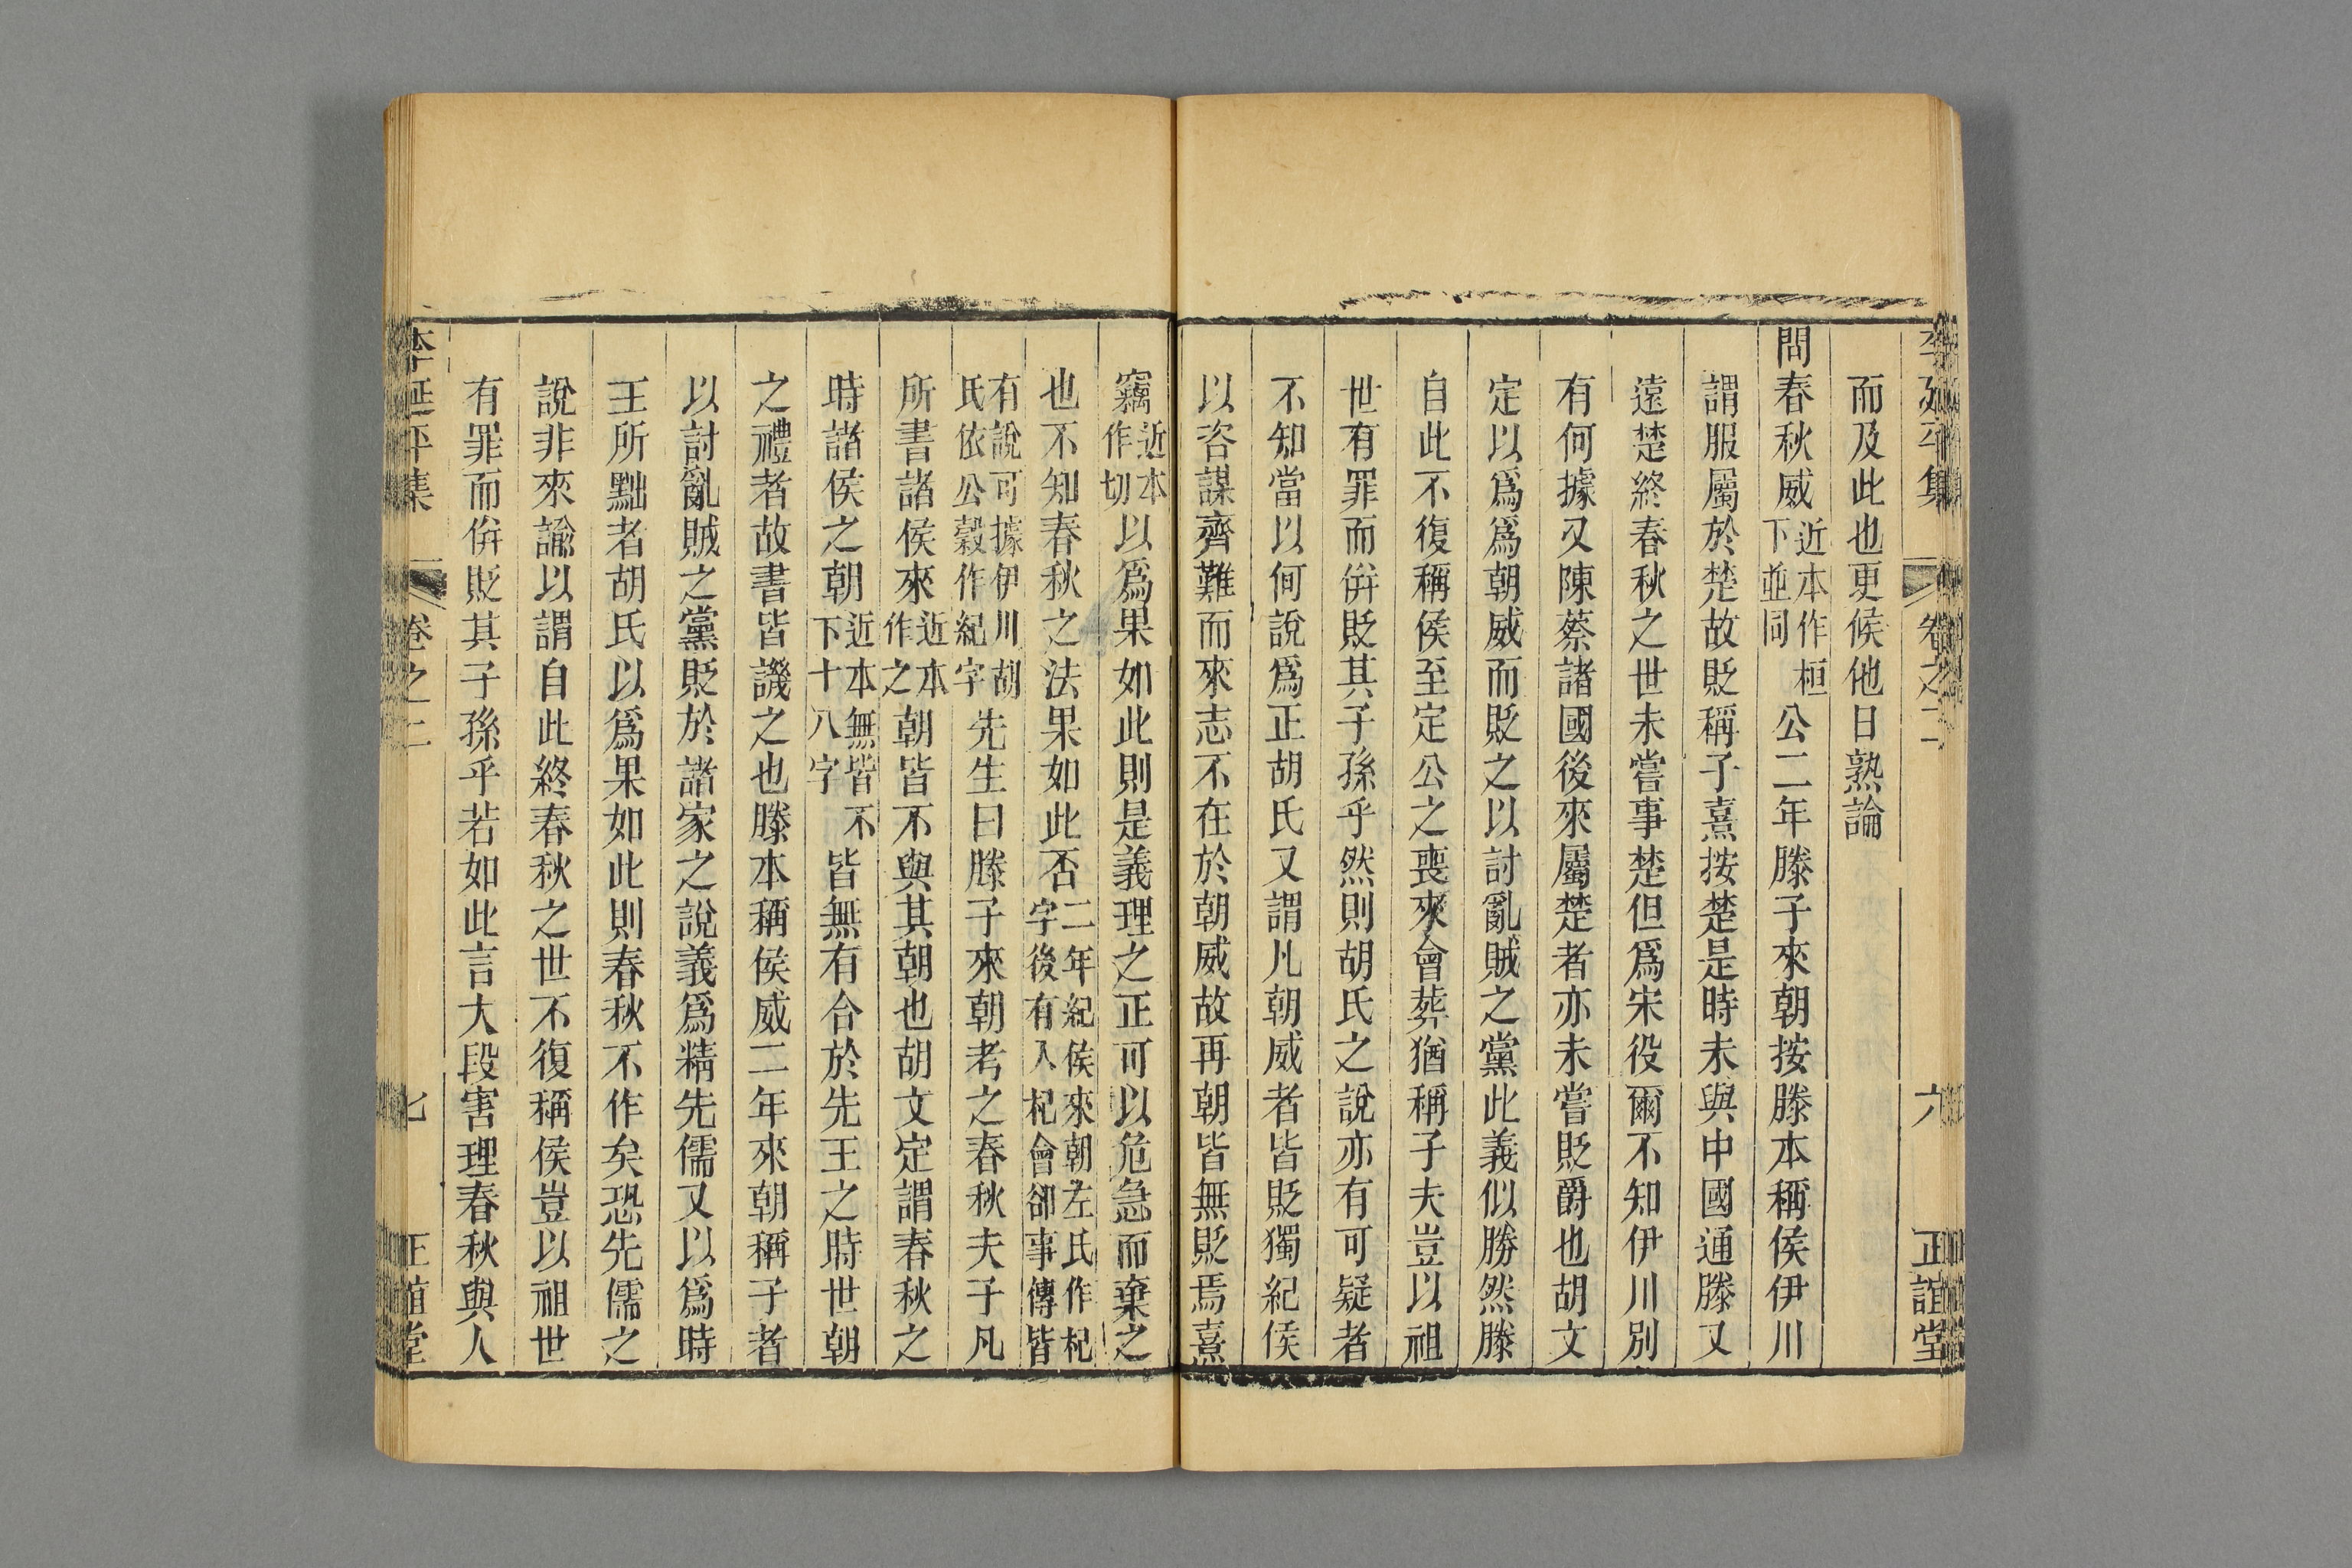 李延平集 卷之二 六 正誼堂
而及此也更候他日熟論
問春秋威近本作桓下並同公二年滕子來朝按滕本稱侯伊川
謂服屬於楚故貶稱子熹按楚是時未與中國通滕又
遠楚終春秋之世未嘗事楚但爲宋役爾不知伊川別
有何據又陳蔡諸國後來屬楚者亦未嘗貶爵也胡文
定以爲爲朝威而貶之以討亂賊之黨此義似勝然滕
自此不復稱侯至定公之喪來會葬猶稱子夫豈以祖
世有罪而倂貶其子孫乎然則胡氏之說亦有可疑者
不知當以何說爲正胡氏又謂凡朝威者皆貶獨紀侯
以咨謀齊難而來志不在於朝威故再朝皆無貶焉熹
竊近本作切以爲果如此則是義理之正可以危急而棄之
也不知春秋之法果如此否二年紀侯來朝左氏作杞字後有入杞會卻事傳皆
有說可據伊川胡氏依公穀作紀字先生曰滕子來朝考之春秋夫子凡
所書諸侯來近本作之朝皆不與其朝也胡文定謂春秋之
時諸侯之朝近本無皆不下十八字皆無有合於先王之時世朝
之禮者故書皆譏之也滕本稱侯威二年來朝稱子者
以討亂賊之黨貶於諸家之說義爲精先儒又以爲時
王所黜者胡氏以爲果如此則春秋不作矣恐先儒之
說非來諭以謂自此終春秋之世不復稱侯豈以祖世
有罪而倂貶其子孫乎若如此言大段害理春秋與人
李延平集 卷之二 七 正誼堂